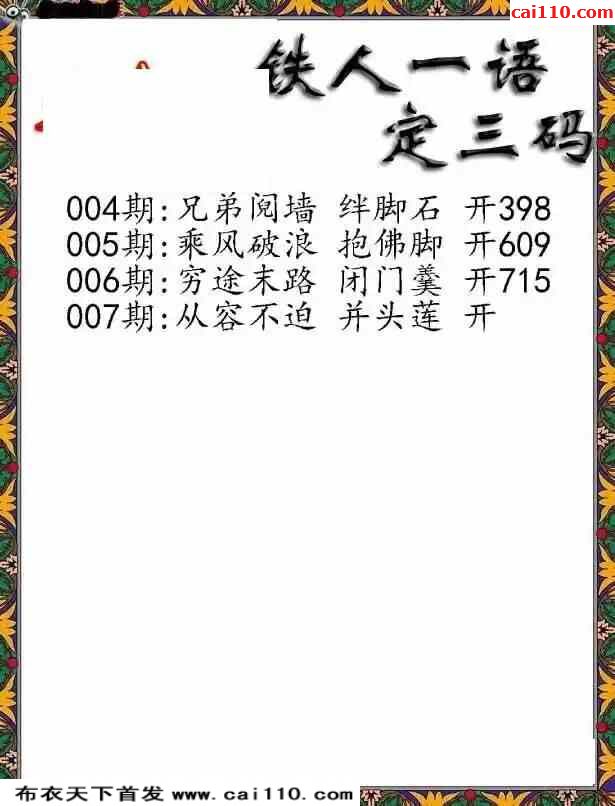 cai110.com
铁人一语
定三码
004期:兄弟阋墙 绊脚石 开398
005期:乘风破浪 抱佛脚 开609
006期:穷途末路 闭门羹 开715
007期:从容不迫 并头莲 开
布衣天下首发 www.cai110.com